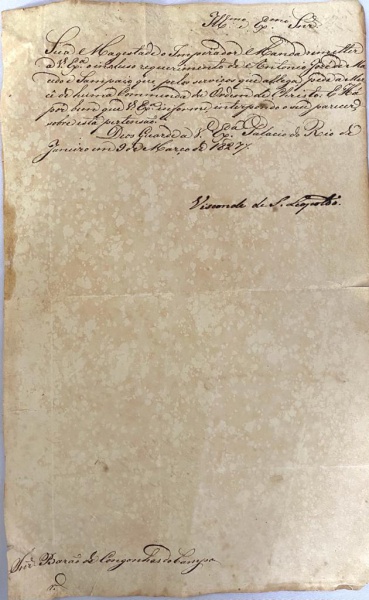 Illmo e Exmo Snr.
Sua Magestade o Imperador Manda remetter
a V. Exa o incluso requerimento de Antonio José de Ma
cedo e Sampaio que pelos serviços que allega, pede a Mer
cê de huma Commenda da Ordem de Christo: E Ha
por bem que V. Exa informe, interpondo o seu parecer
sobre esta pertensão.
Deos Guarde a V. Exa. Palacio do Rio de
Janeiro em 9 de Março de 1827.
Visconde de S. Leopoldo.
Snr. Barão de Congonhas do Campo